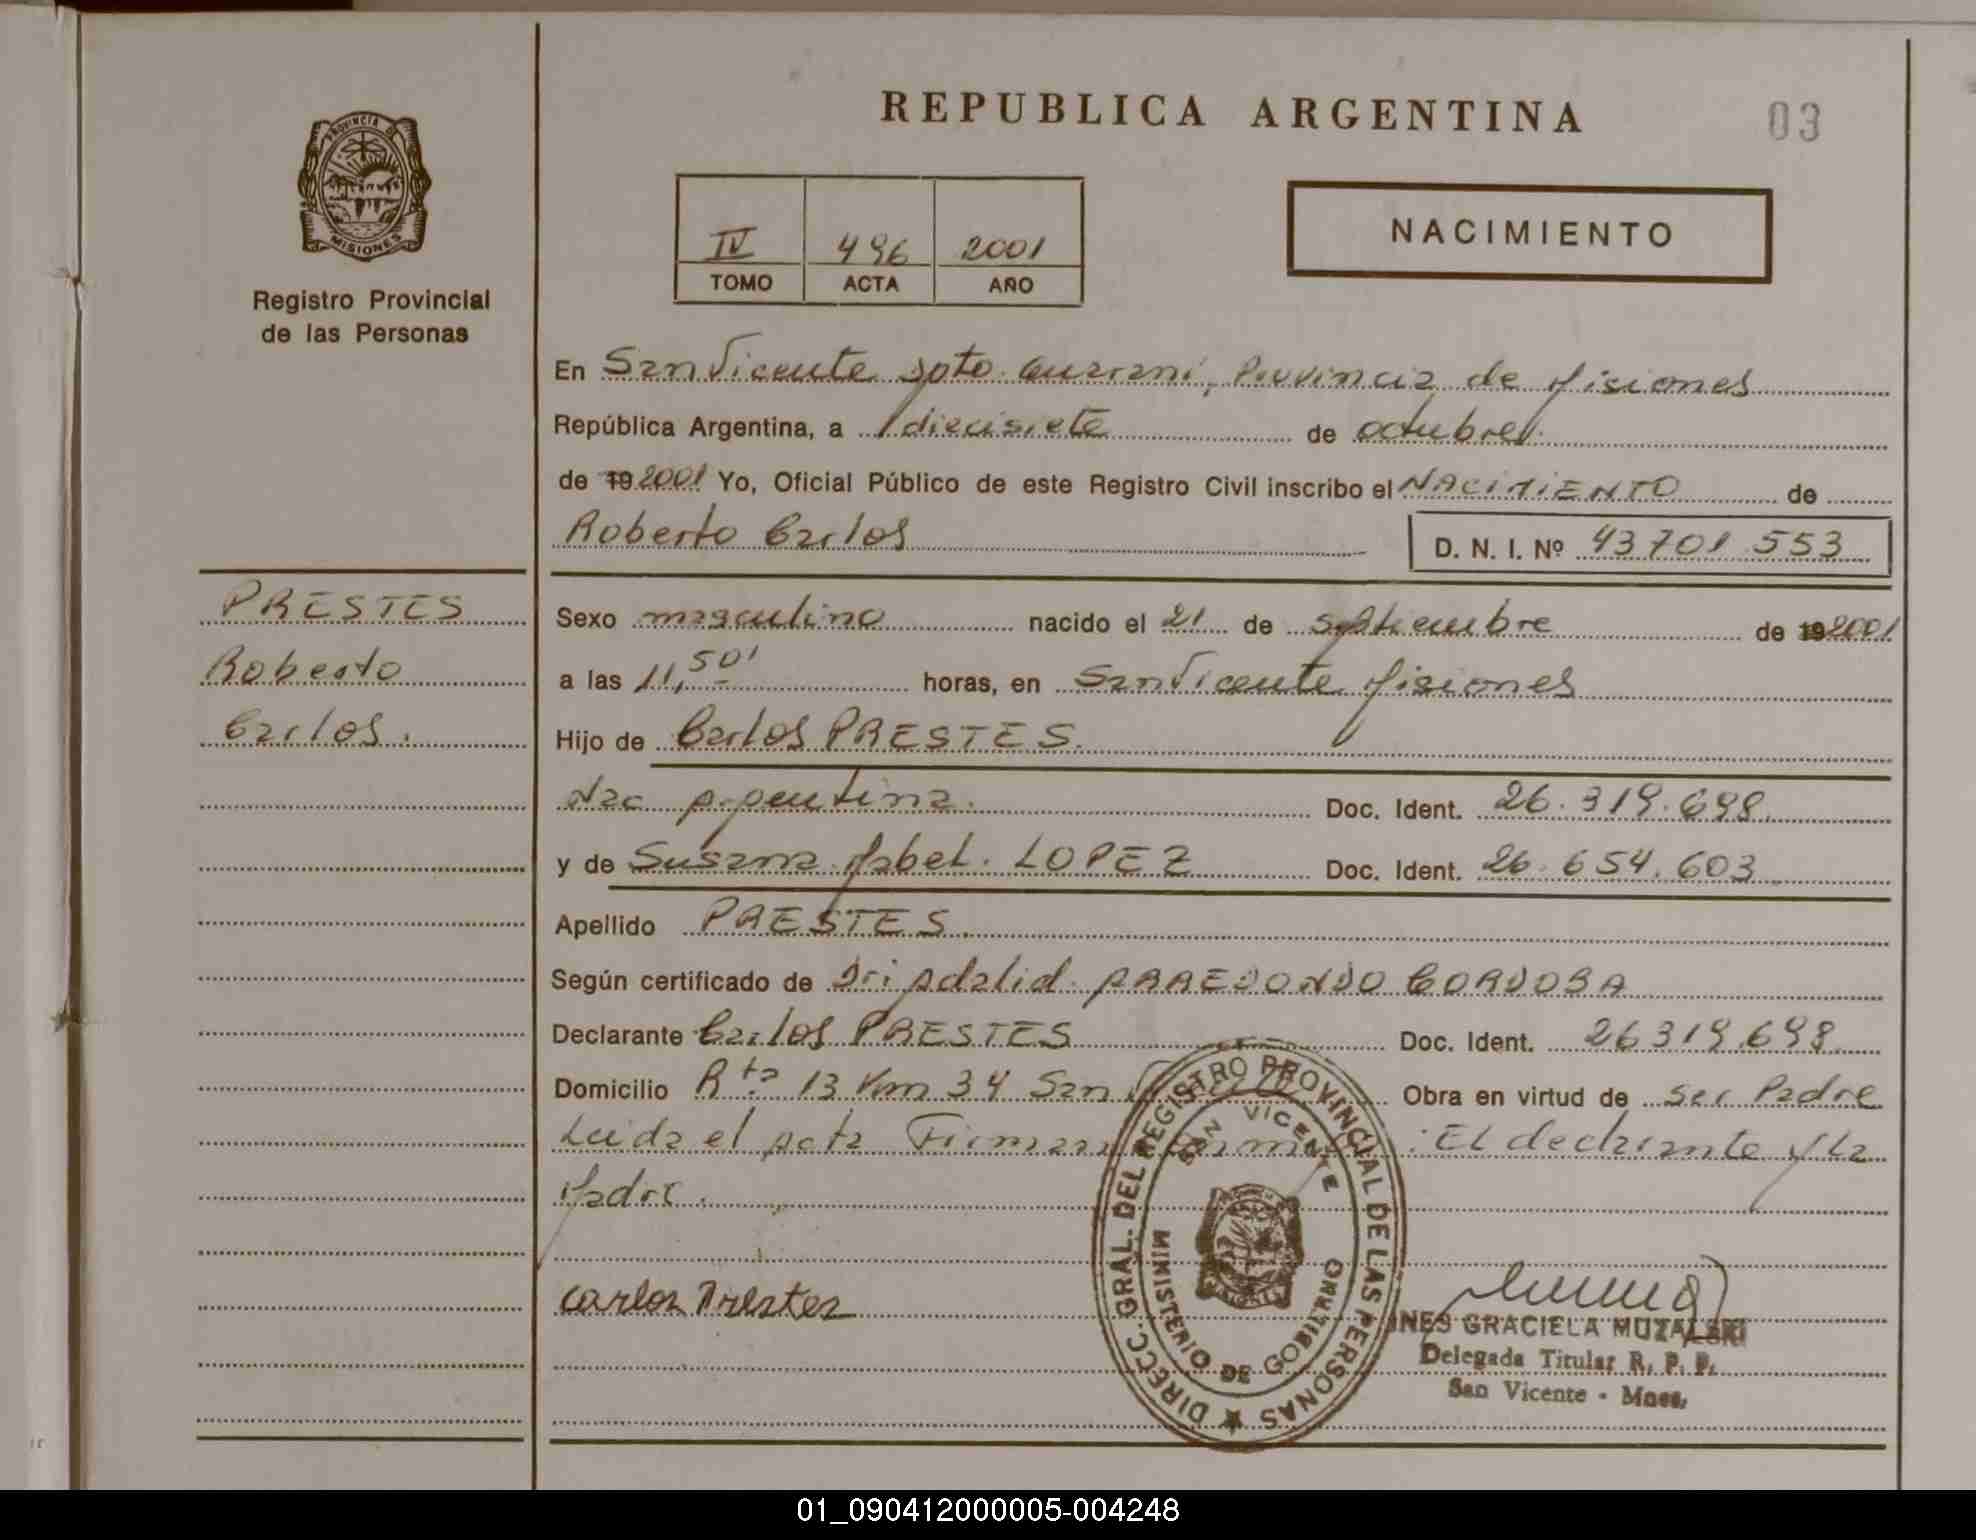 REPUBLICA ARGENTINA
03
PROVINCIA DE
MISIONES
Registro Provincial
de las Personas
IV 496 2001
TOMO ACTA AÑO
NACIMIENTO
En San Vicente Dpto. Guaraní, Provincia de Misiones
República Argentina, a diecisiete de octubre
de 19 2001 Yo, Oficial Público de este Registro Civil inscribo el NACIMIENTO de
Roberto Carlos
D. N. I. Nº 43701.553
PRESTES
Roberto
Carlos.
Sexo masculino nacido el 21 de septiembre de 19 2001
a las 11,50' horas, en San Vicente Misiones
Hijo de Carlos PRESTES.
Nac Argentina. Doc. Ident. 26.319.698.
y de Susana Mabel. LOPEZ Doc. Ident. 26.654.603
Apellido PRESTES.
Según certificado de Dr: Adalid. ARREDONDO CORDOBA
Declarante Carlos PRESTES Doc. Ident. 26319.698
Domicilio Rta 13 Km 34 San Obra en virtud de ser Padre
Leida el acta Firman : El declarante y la
Madre.
Carlos Prestes
DIRECC. GRAL. DEL REGISTRO PROVINCIAL DE LAS PERSONAS
SAN VICENTE
MINISTERIO DE GOBIERNO
INES GRACIELA MUZALSKI
Delegada Titular R. P. P.
San Vicente - Mnes.
01_090412000005-004248